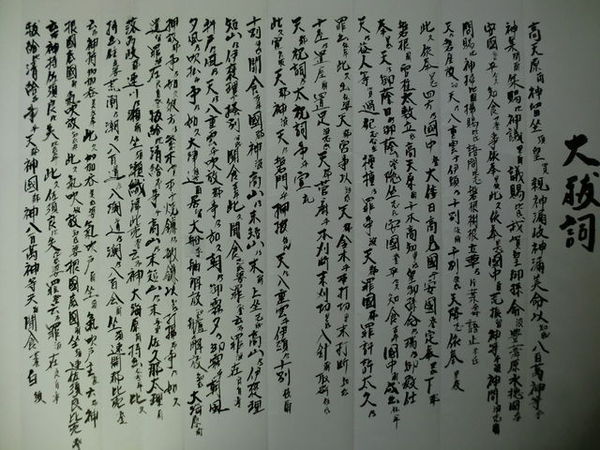 大祓詞
高天原爾神留坐須皇親神漏岐神漏美命以氐八百萬神等乎
神集閉爾集賜比神議里爾議賜比氐我皇御孫命波豊葦原水穂國乎
安國止平介久知食世止事依奉伎此久依奉志國中爾荒振神等乎婆神問婆志爾
問賜比神掃爾掃賜比氐語問志磐根樹根立草乃片葉乎母語止米氐
天乃磐座放知天乃八重雲乎伊頭乃千別伎爾千別伎氐天降志依奉伎
此久依奉志四方乃國中止大倭日高見國乎安國止定奉里氐下都
磐根爾宮柱太敷立氐高天原爾千木高知里氐皇御孫命乃瑞乃御殿仕
奉里氐天乃御蔭日乃御蔭止隠坐志氐安國止平介久知食左牟國中爾成出牟
天乃益人等我過犯志介牟種種乃罪事波天都罪國都罪許許太久乃
罪出牟此久出婆天都宮事以知氐天都金木乎本打切里末打断知氐
千座乃置座爾置足波志氐天都菅麻乎本刈断末刈切里氐八針爾取裂伎氐
天都祝詞乃太祝詞事乎宣禮
此久宣良婆天都神波天乃磐門乎押披伎氐天乃八重雲乎伊頭乃千別伎爾
千別伎氐聞食左牟國都神波高山乃末短山乃末爾上坐志氐高山乃伊褒理
短山乃伊褒理乎掻別介氐聞食左牟此久聞食志氐婆罪止云布罪波在良自止
科戸乃風乃天乃八重雲乎吹放都事乃如久朝乃御霧夕乃御霧乎朝風
夕風乃吹拂布事乃如久大津邊爾居留大船乎舳解放知艫解放知氐大海原爾
押放都事乃如久彼方乃繁木賀本乎焼鎌乃敏鎌以知氐打掃布事乃如久
遺留罪波在良自止祓給比清給布事乎高山乃末短山乃末与里佐久那太理爾
落多岐都速川乃瀬爾坐須瀬織津比賣止云布神大海原爾持出奈牟此久
持出往奈婆荒潮乃潮乃八百道乃八潮道乃潮乃八百會爾坐須速開都比賣止
云布神持加加呑美氐牟此久加加呑美氐婆氣吹戸爾坐須氣吹戸主止云布神
根國底國爾氣吹放知氐牟此久氣吹放知氐婆根國底國爾坐須速佐須良比賣止
云布神持佐須良比失比氐牟此久佐須良比失比氐婆罪止云布罪波在良自止
祓給比清給布事乎天都神國都神八百萬神等共爾聞食世止白須